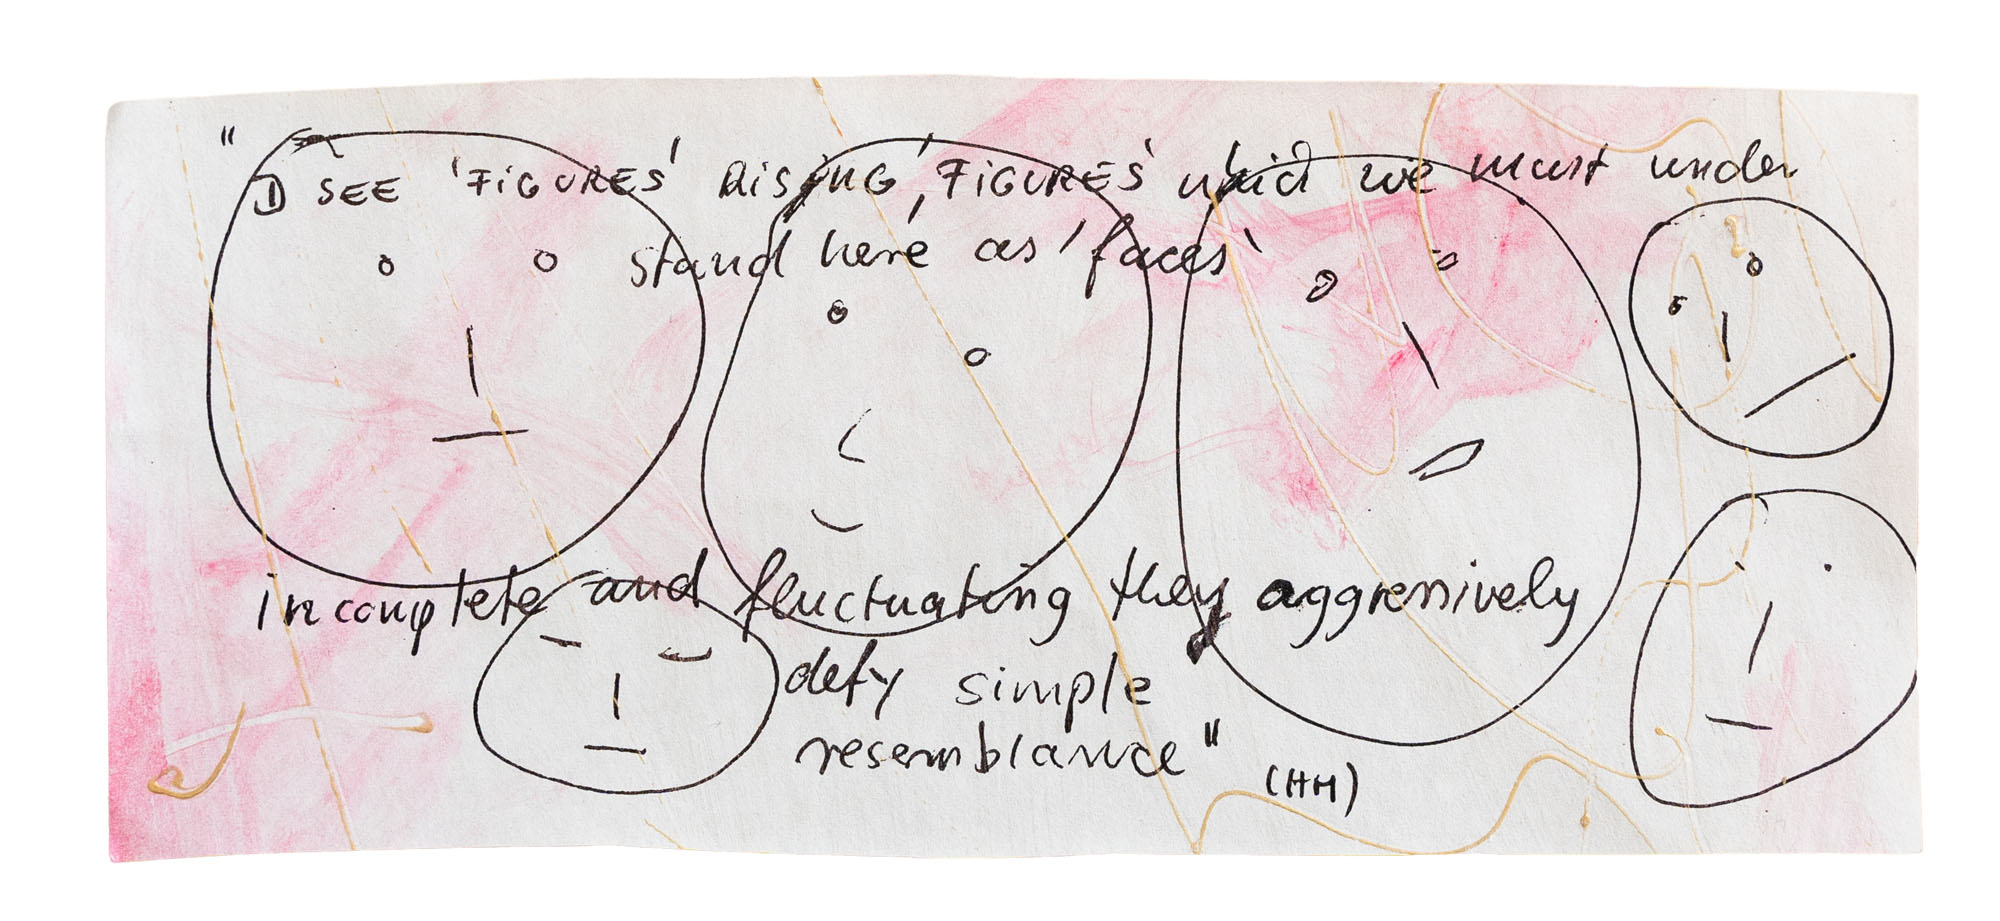 "I SEE 'FiGURES' RiSiNG, 'FiGURES' which we must under
stand here as 'faces'
incomplete and fluctuating they aggressively
defy simple
resemblance"
(HM)